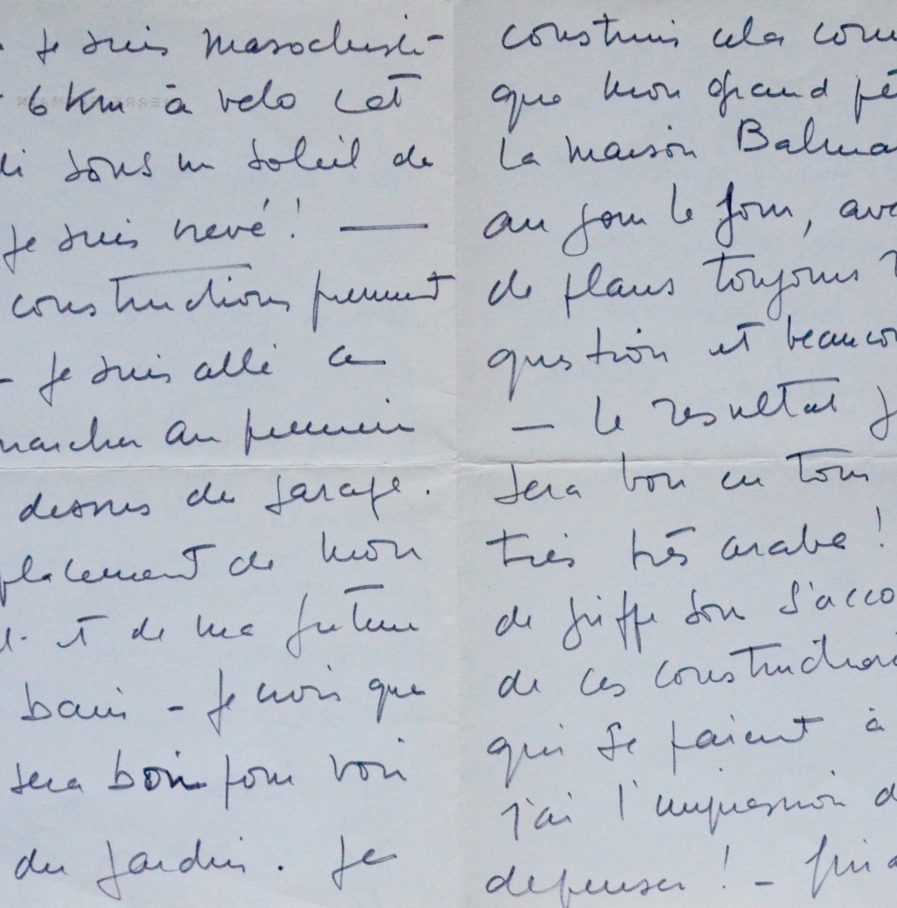 Je suis masochiste
6 Km à velo cet
di sous un soleil de
je suis crevé ! —
constructions prennent
- Je suis allé ce
marcher au premier
dessus du garage.
placement de mon
et de ma future
bain - Je crois que
sera bon pour voir
du jardin. Je
construis cela com
que mon grand pè
la maison Balma
au jour le jour, ave
de plans toujours
question et beaucou
— le resultat
sera bon en tou
très très arabe !
de griffe son s'acco
de ces construction
qui se paient à
j'ai l'impression d
depenser ! -